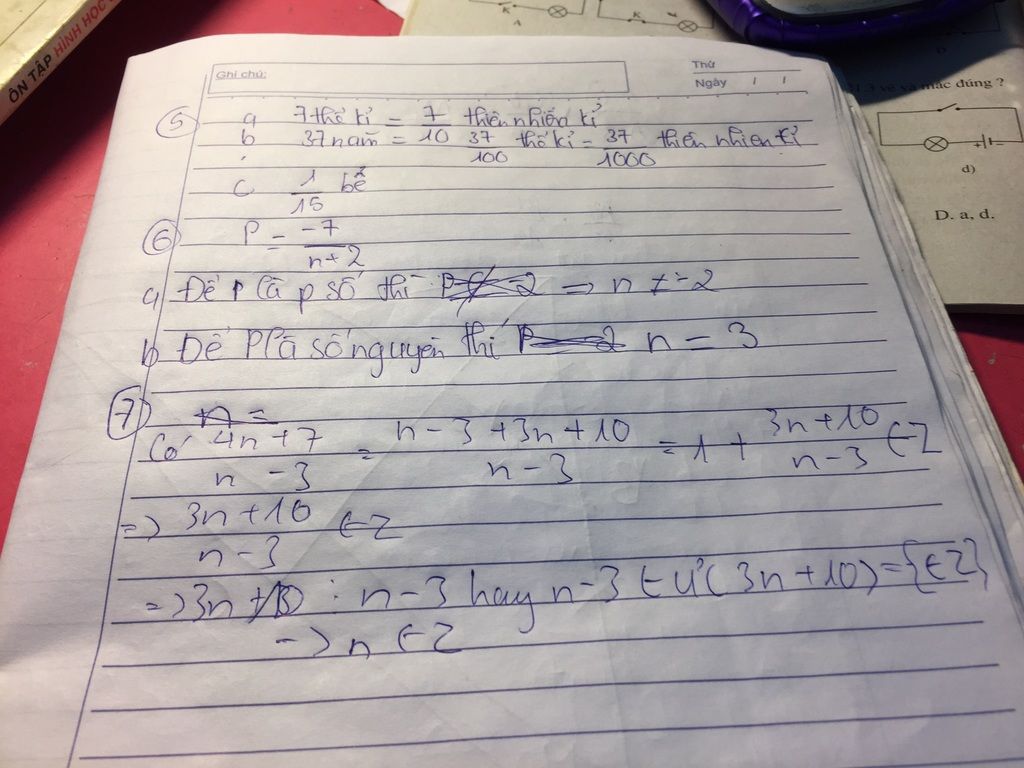 ÔN TẬP HÌNH HỌC
Ghi chú:
Thứ
Ngày / /
5 a 7 thế kỉ = 7/10 thiên nhiên kỉ
b 37 năm = 37/100 thế kỉ = 37/1000 thiên nhiên kỉ
c 1/15 bể
6 P = -7/n+2
a Để P là p số thì => n ≠ -2
b Để P là số nguyên thì n = 3
7 n =
Có 4n+7/n-3 = n-3+3n+10/n-3 = 1 + 3n+10/n-3 ∈ Z
=> 3n+10/n-3 ∈ Z
=> 3n+10 : n-3 hay n-3 ∈ Ư(3n+10) = {∈Z}
-> n ∈ Z
K
A
K
D
vẽ và mắc đúng ?
d)
D. a, d.